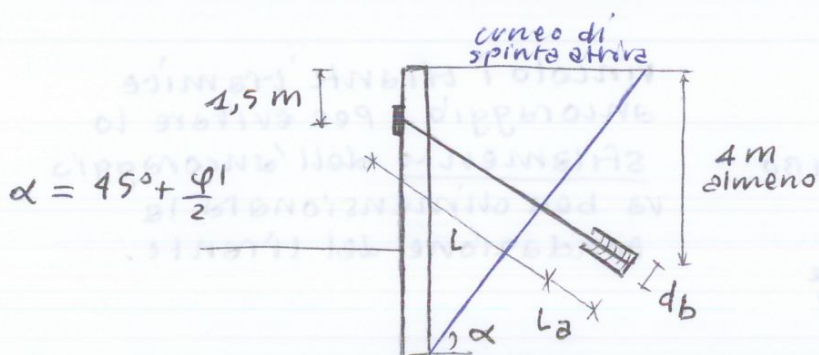 cuneo di
spinta attiva
1,5 m
α = 45° + φ'/2
4 m
almeno
L
La
db
α